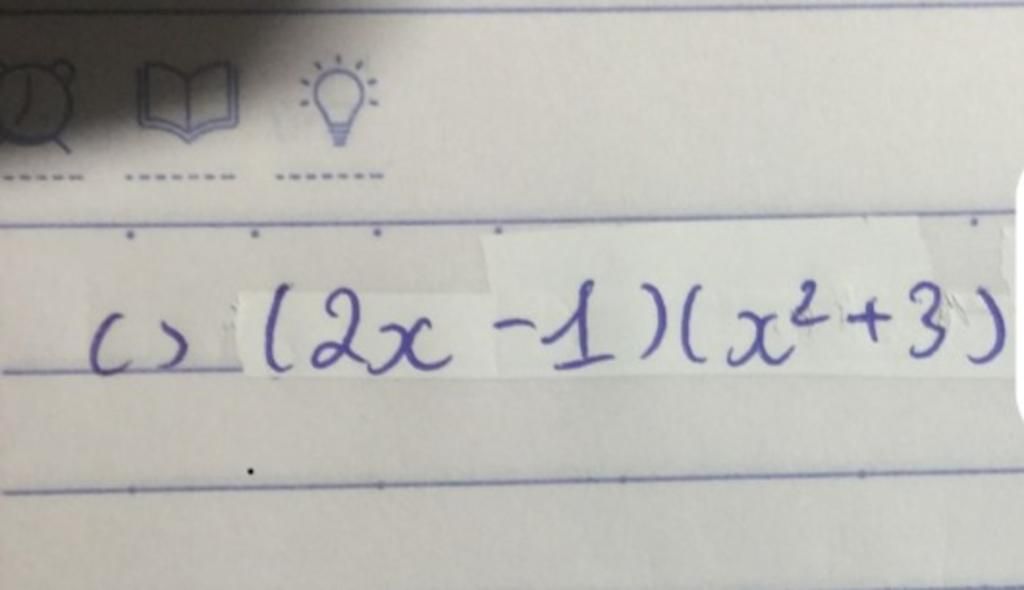 c) (2x - 1)(x² + 3)